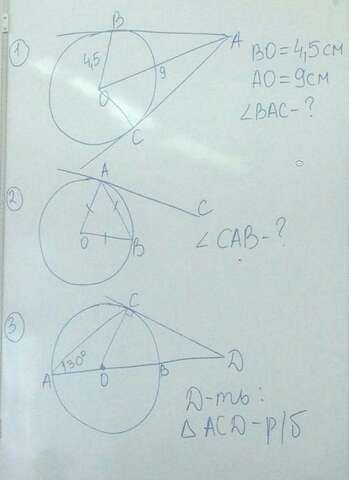 1
B
A
4,5
9
O
C
BO=4,5см
AO=9см
∠BAC-?
2
A
C
O
B
∠CAB-?
3
C
30°
A
O
B
D
D-ть:
△ACD-р/б